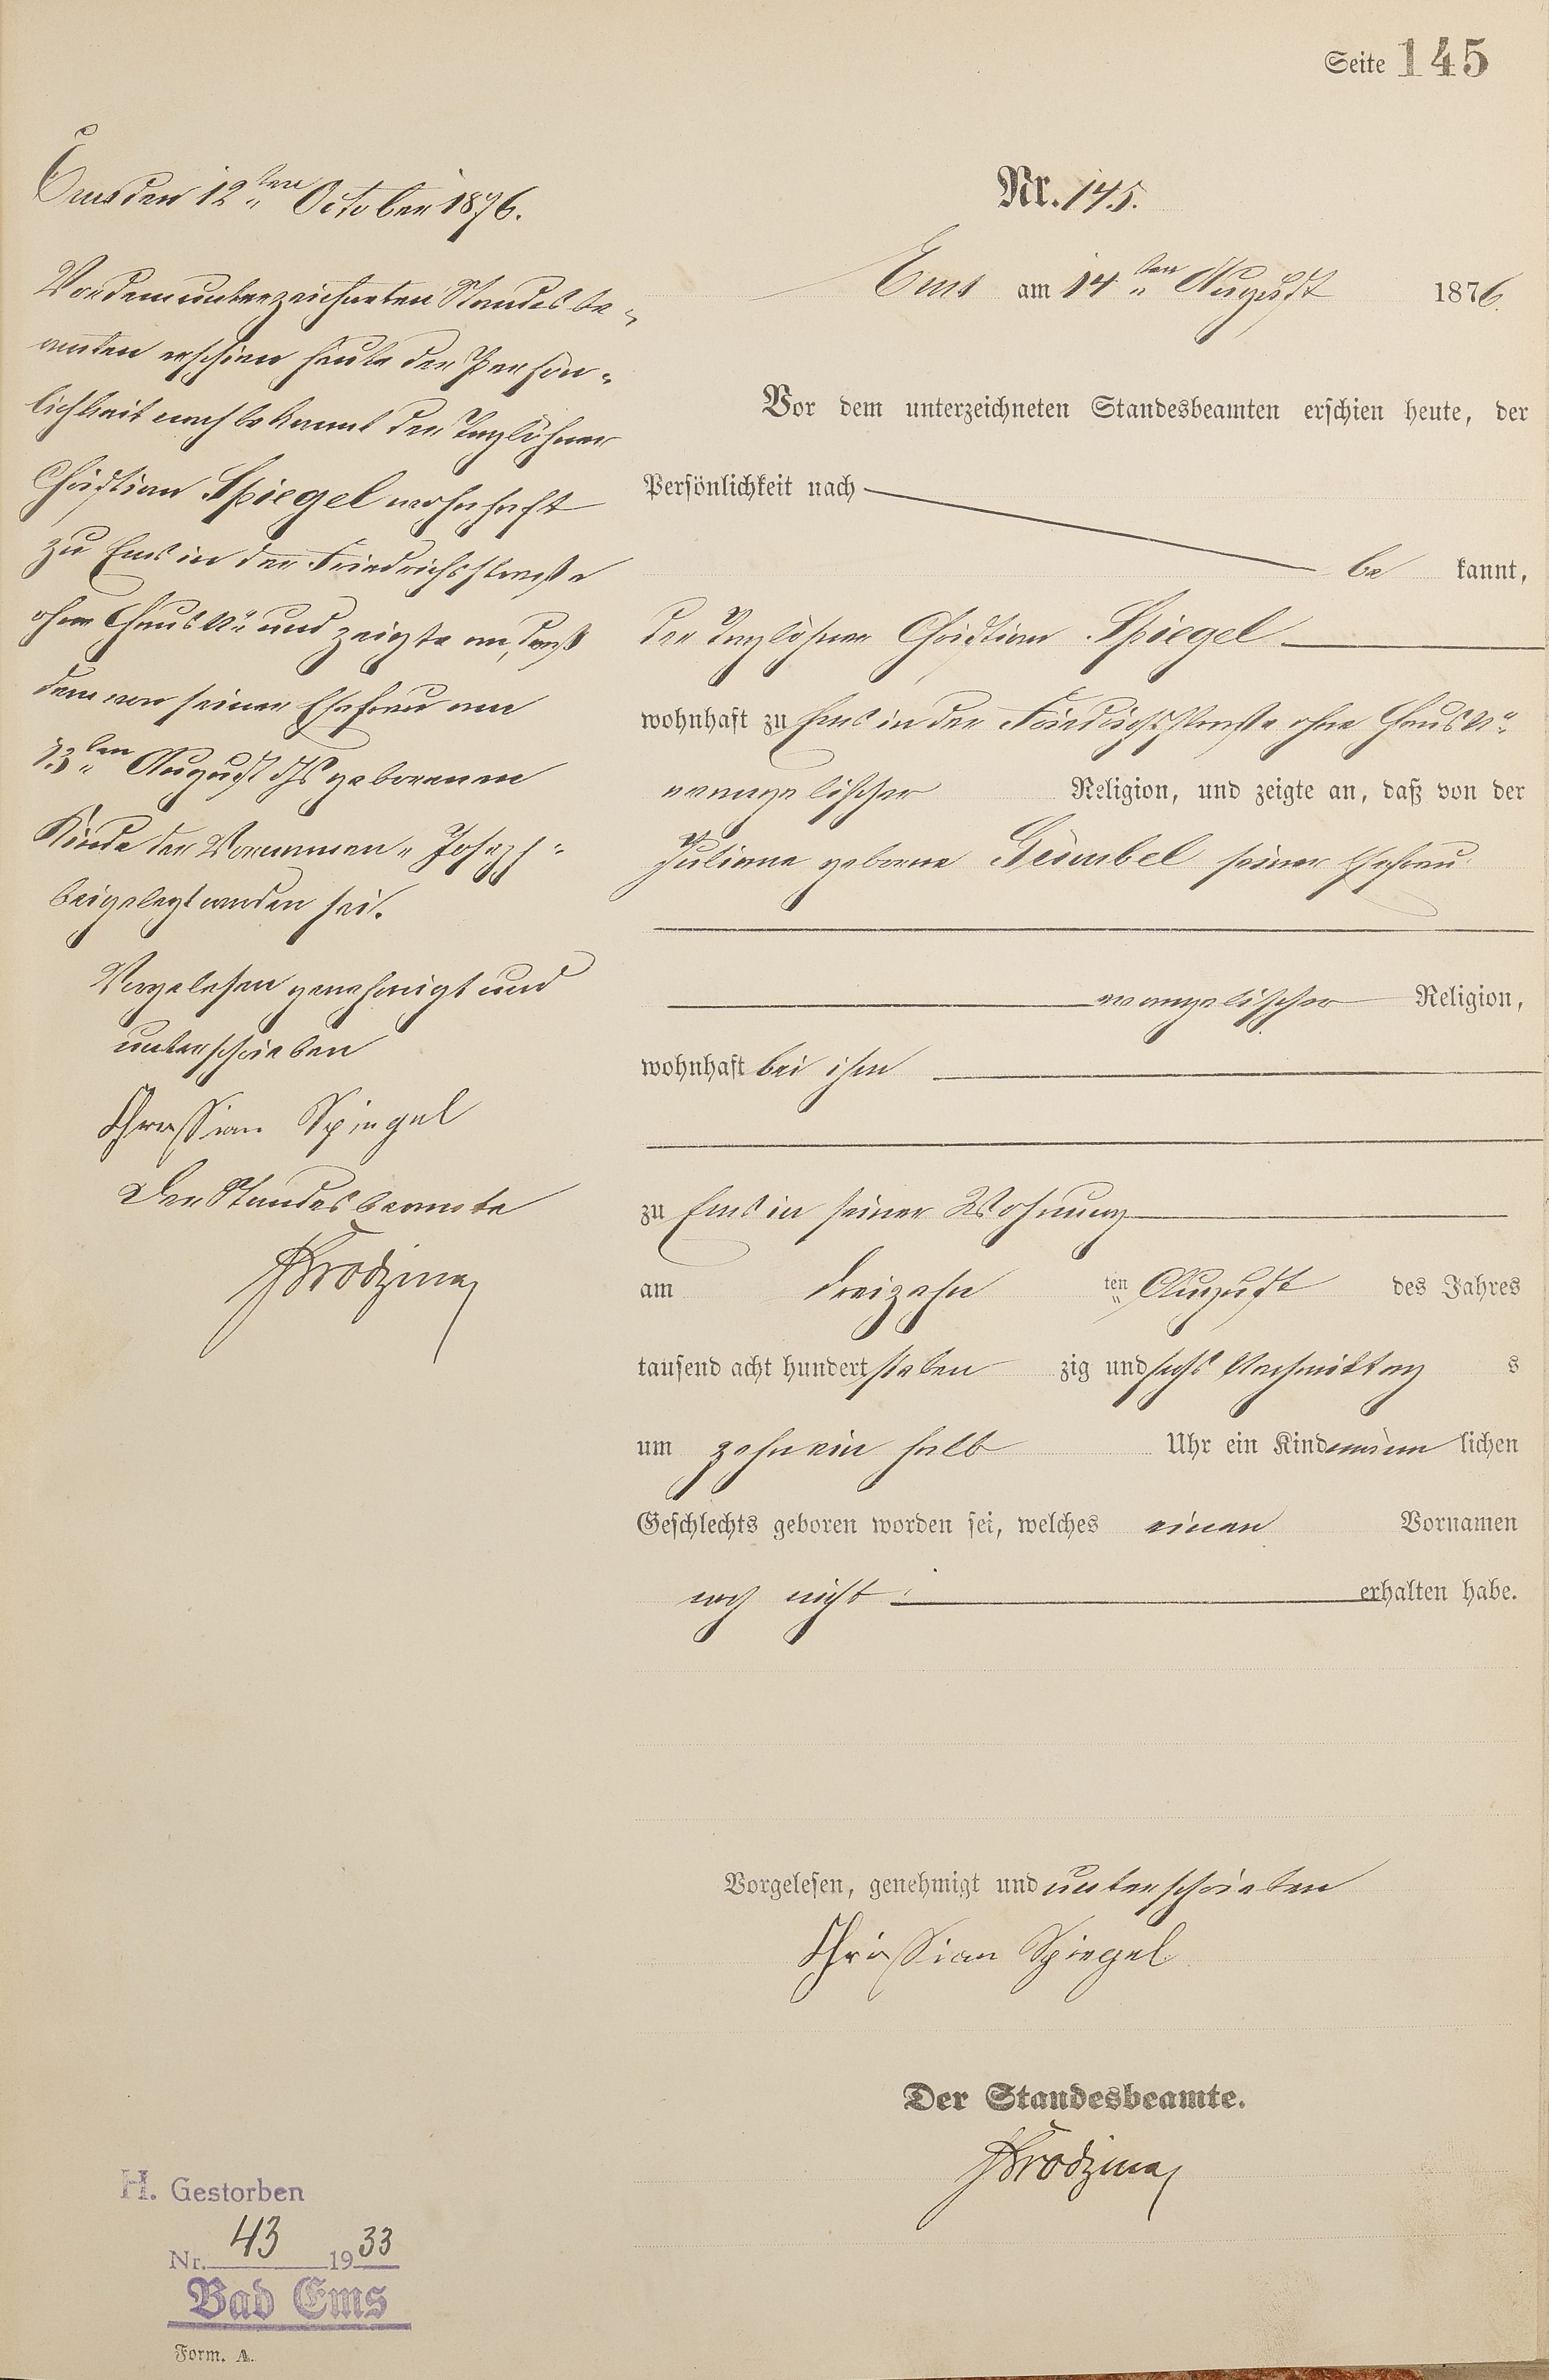 Seite 145
Ems den 12ten October 1876.
Vor dem unterzeichneten Standesbe-
amten erschien heute der Persön-
lichkeit nach bekannt der Taglöhner
Christian Spiegel wohnhaft
zu Ems in der Friedrichsstraße
ohne Haus No und zeigte an, daß
dem von seiner Ehefrau am
13ten August geborenen
Kinde der Vornamen "Joseph"
beigelegt worden sei.
Vorgelesen genehmigt und
unterschrieben
Christian Spiegel
Der Standesbeamte
Nr. 145.
Ems am 14ten August 1876.
Vor dem unterzeichneten Standesbeamten erschien heute, der
Persönlichkeit nach
be kannt,
der Taglöhner Christian Spiegel
wohnhaft zu Ems in der Friedrichsstraße ohne Haus No
evangelischer Religion, und zeigte an, daß von der
Juliane geborne Gümbel seiner Ehefrau
evangelischer Religion,
wohnhaft bei ihm
zu Ems in seiner Wohnung
am dreizehn ten August des Jahres
tausend acht hundert sieben zig und sechs Nachmittag s
um zehn ein halb Uhr ein Kind männ lichen
Geschlechts geboren worden sei, welches einen Vornamen
noch nicht erhalten habe.
Vorgelesen, genehmigt und unterschrieben
Christian Spiegel
Der Standesbeamte.
H. Gestorben
Nr. 43 1933
Bad Ems
Form. A.